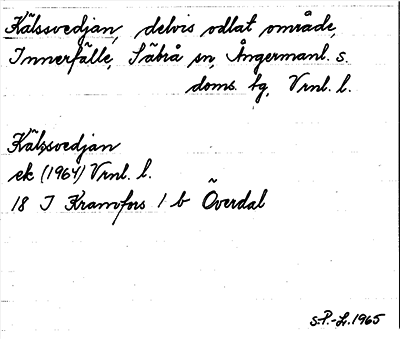 Kälssvedjan, delvis odlat område,
Innerfälle, Säbrå sn, Ångermanl. s.
doms. fg, Vrnl. l.
Kälssvedjan
ek (1964) Vrnl. l.
18 I Kramfors 1 b Överdal
S.-P.-L. 1965